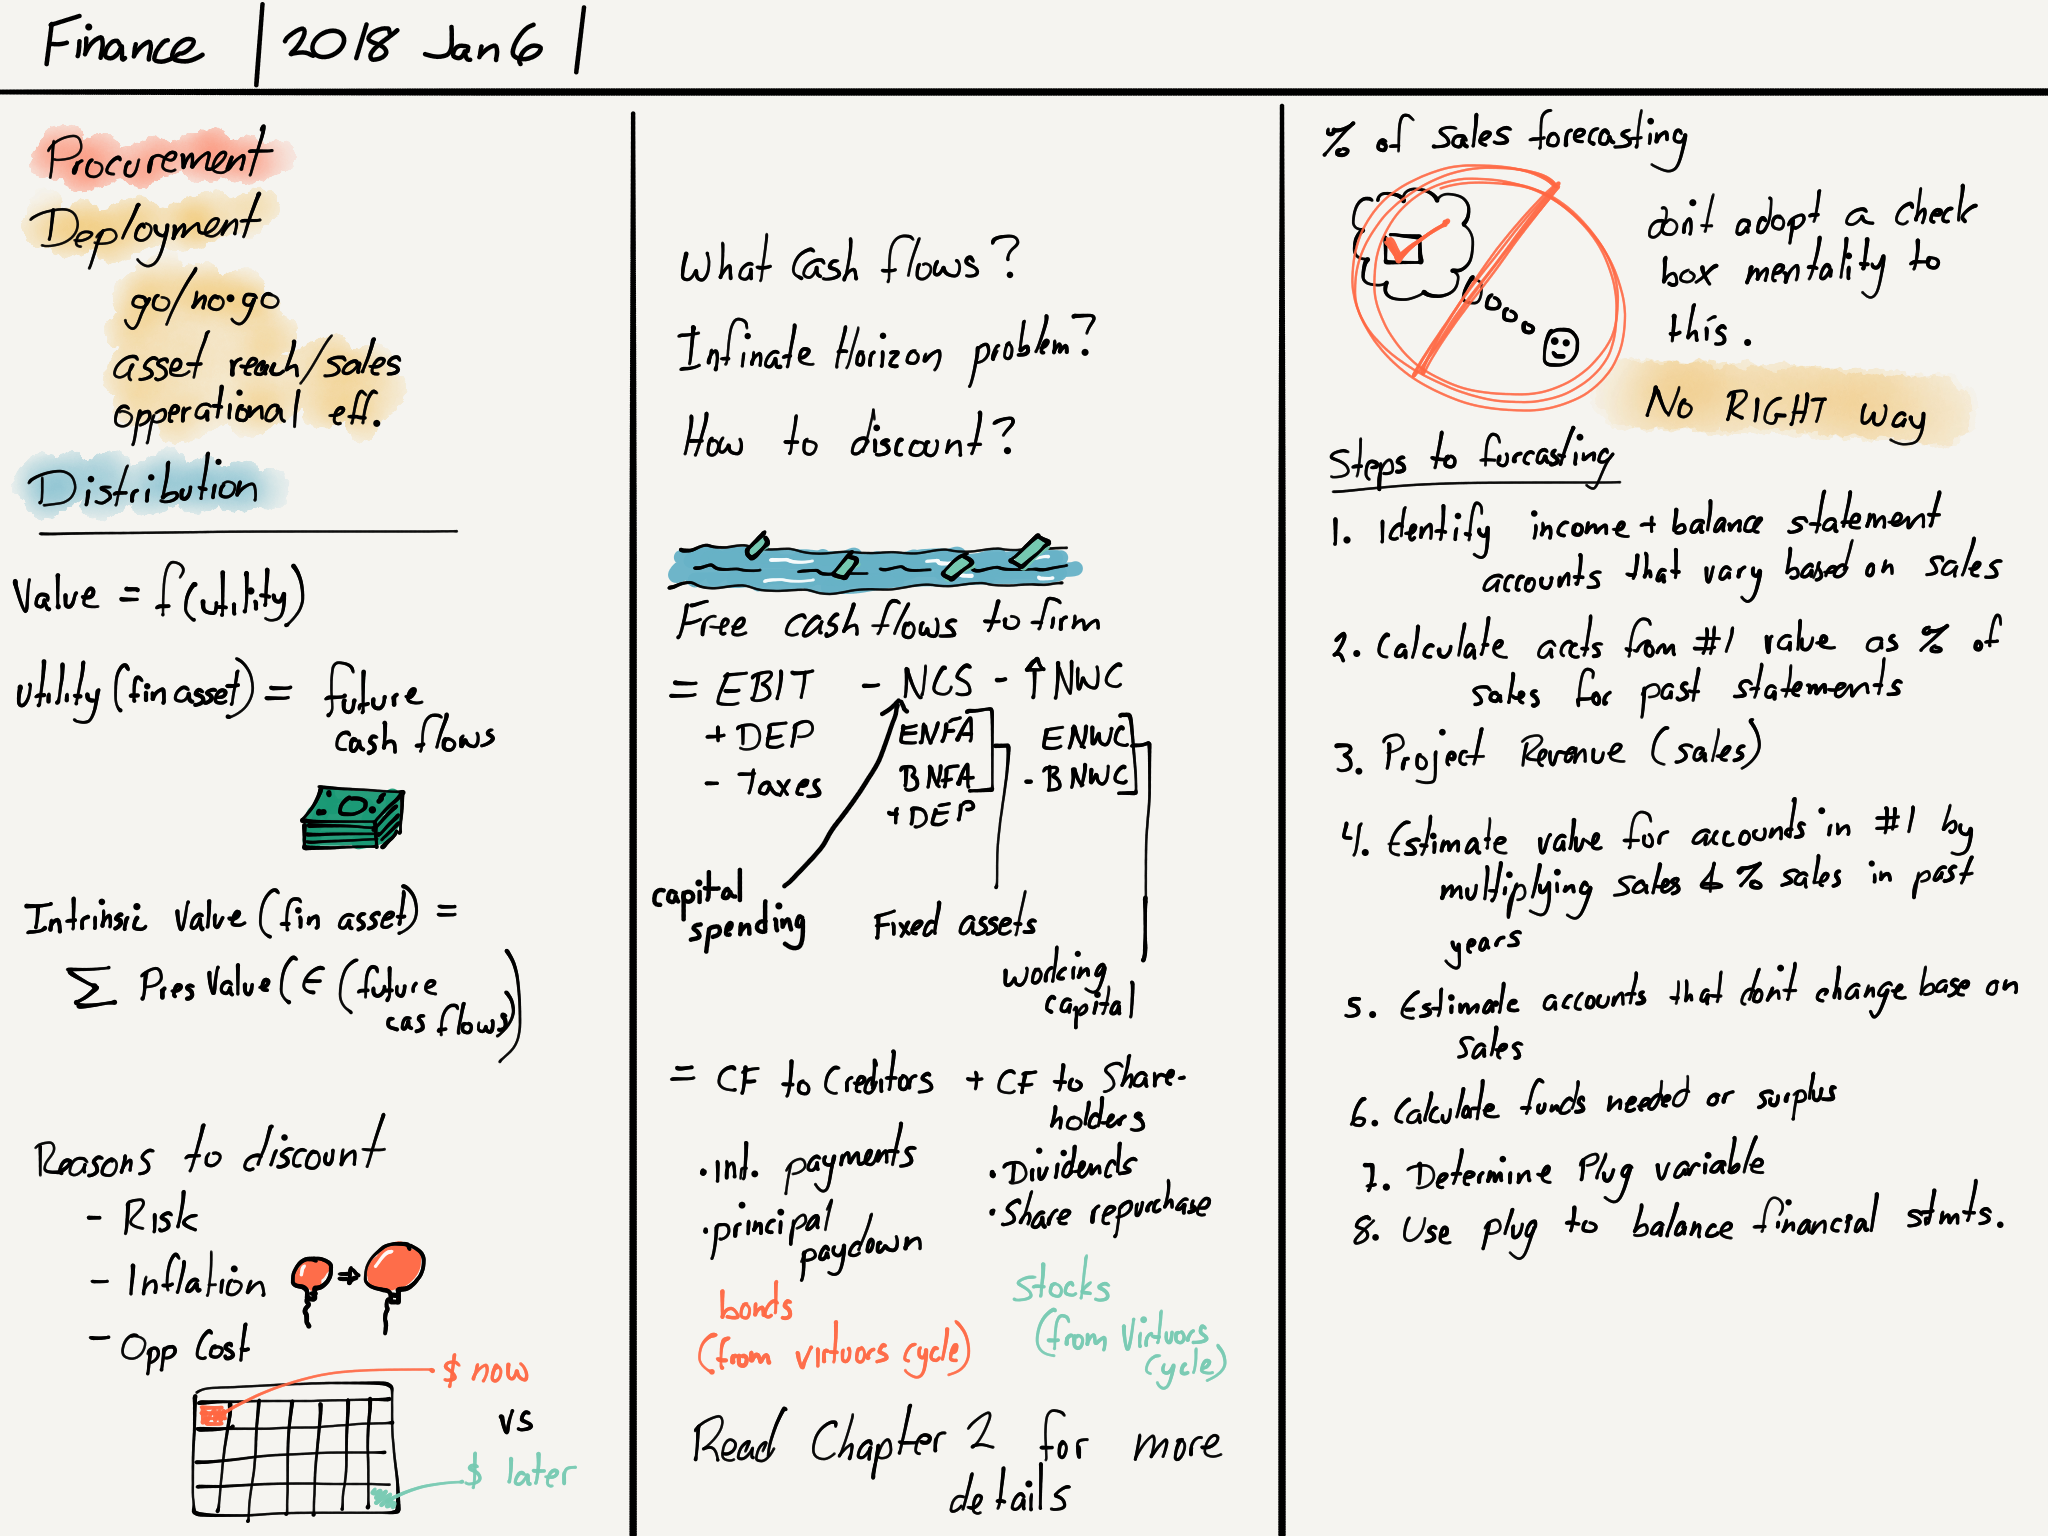 Finance | 2018 Jan 6 |
Procurement
Deployment
go/no-go
asset reach/sales
opperational eff.
Distribution
Value = f(utility)
Utility (fin asset) = future
cash flows
Intrinsic Value (fin asset) =
∑ Pres Value (E (future
cas flows))
Reasons to discount
- Risk
- Inflation
- Opp Cost
$ now
vs
$ later
What Cash flows?
Infinate Horizon problem?
How to discount?
Free cash flows to firm
= EBIT - NCS - ↑NWC
+ DEP ENFA ENWC
- Taxes BNFA - BNWC
+ DEP
capital
spending
Fixed assets
working
capital
= CF to Creditors + CF to Share-
holders
• Int. payments
• principal
paydown
• Dividends
• Share repurchase
bonds
(from virtuors cycle)
Stocks
(from Virtuors
cycle)
Read Chapter 2 for more
details
% of sales forecasting
don't adopt a check
box mentality to
this.
No RIGHT way
Steps to furcasting
1. Identify income + balance statement
accounts that vary based on sales
2. Calculate accts from #1 value as % of
sales for past statements
3. Project Revenue (sales)
4. Estimate value for accounts in #1 by
multiplying sales & % sales in past
years
5. Estimate accounts that don't change base on
sales
6. Calculate funds needed or surplus
7. Determine Plug variable
8. Use plug to balance financial stmts.